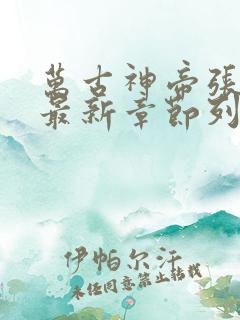 萬古神帝張
最新章節列
伊帕尔汗
未经同意禁止转载